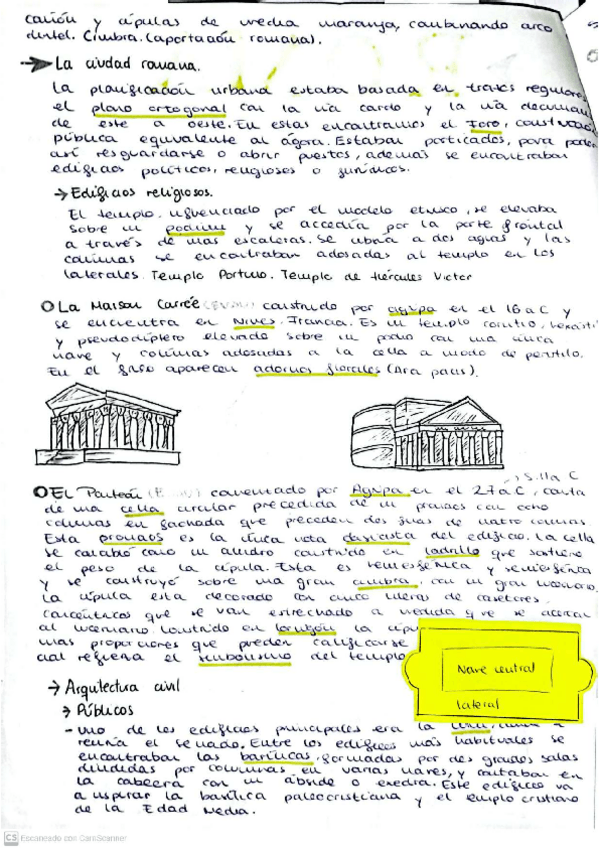 cañón y cúpulas de media naranja, combinando arco
dintel. Cimbra. (aportación romana).
La ciudad romana.
La planificación urbana estaba basada en trazos regulares
el plano ortogonal con la vía cardo y la vía decuman
de este a oeste. En estas encontramos el Foro, construcció
pública equivalente al ágora. Estaban porticados, para poder
así resguardarse o abrir puestos, además se encontraban
edificios políticos, religiosos o jurídicos.
→ Edificios religiosos.
El templo, influenciado por el modelo etrusco, se elevaba
sobre un podium y se accedía por la parte frontal
a través de unas escaleras. Se cubría a dos aguas y las
columnas se encontraban adosadas al templo en los
laterales. Templo Portuno. Templo de Hércules Victor
La Maison Carrée construido por agripa en el 16 a C y
se encuentra en Nimes. Francia. Es un templo corintio,
y pseudodíptero elevado sobre un podio con una única
nave y columnas adosadas a la cella a modo de peristilo.
En el friso aparecen adornos florales (Ara pacis).
S. II a C
El Panteón comentado por Agripa en el 27 a C, consta
de una cella circular precedida de un pronaos con ocho
columnas en fachada que preceden dos filas de cuatro columnas
Esta pronaos es la única nota clasicista del edificio. La cella
se concibió como un cilindro construido en ladrillo que sostiene
el peso de la cúpula. Esta es semiesférica
y se construyó sobre una gran cimbra, con un gran
La cúpula esta decorado con cinco hileras de casetones
concéntricos que se van estrechado a medida que se acercan
al Construido en hormigón la cúpu
unas proporciones que pueden calificarse
cual refuerza el simbolismo del templo
Nave central
lateral
→ Arquitectura civil
→ Públicos
- uno de los edificios principales era la
reunía el senado. Entre los edificios más habituales se
encontraban las basílicas, formadas por des grandes salas
divididas por columnas en varias naves, y contaban en
la cabecera con un ábside o exedra. Este edificio va
a inspirar la basílica paleocristiana y el templo cristiano
de la Edad Media.
CS Escaneado con CamScanner